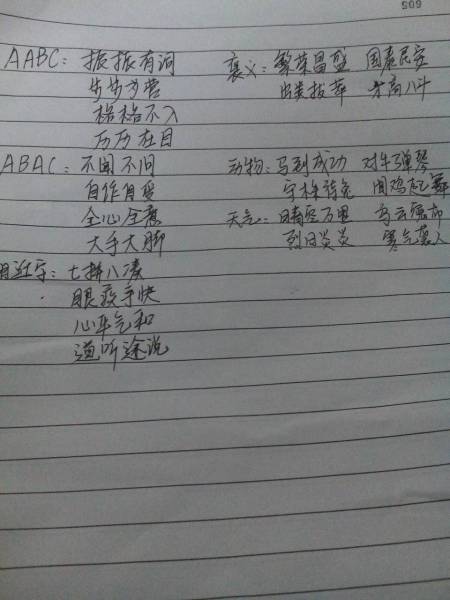 605
AABC: 振振有词 褒义: 繁荣昌盛 国泰民安
步步为营 出类拔萃 才高八斗
格格不入
历历在目
ABAC: 不闻不问 动物: 马到成功 对牛弹琴
自作自受 守株待兔 闻鸡起舞
全心全意 天气: 晴空万里 乌云密布
大手大脚 烈日炎炎 寒气袭人
近字: 七拼八凑
眼疾手快
心平气和
道听途说